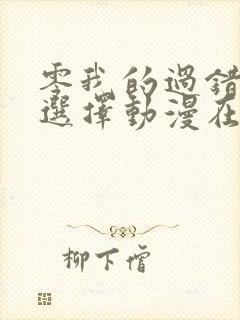 零我的過錯
選擇動漫在
柳下僧